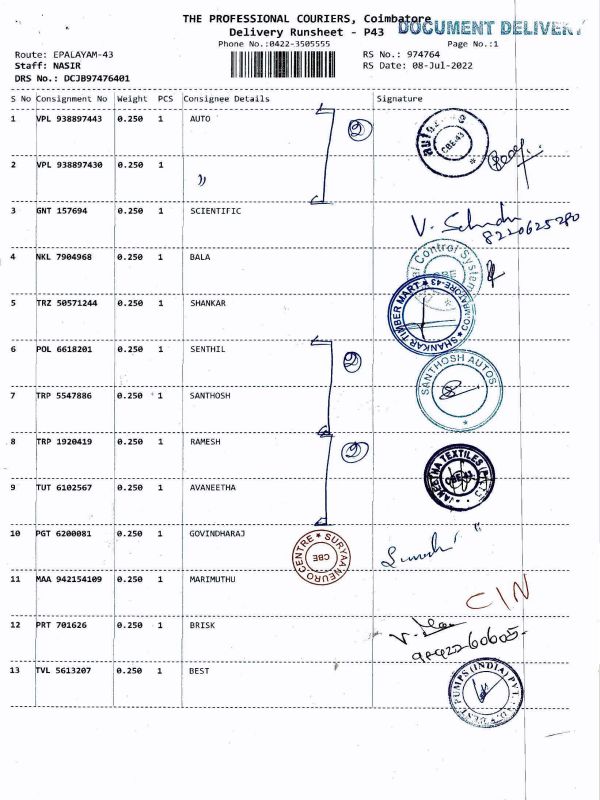 THE PROFESSIONAL COURIERS, Coimbatore
DOCUMENT DELIVERY
Delivery Runsheet - P43
Phone No.:0422-3505555 Page No.:1
Route: EPALAYAM-43 RS No.: 974764
Staff: NASIR RS Date: 08-Jul-2022
DRS No.: DCJB97476401
S No Consignment No Weight PCS Consignee Details Signature
1 VPL 938897443 0.250 1 AUTO 2
CBE-43
2 VPL 938897430 0.250 1 〃
3 GNT 157694 0.250 1 SCIENTIFIC
8220625280
4 NKL 7904968 0.250 1 BALA
Control System
CBE
5 TRZ 50571244 0.250 1 SHANKAR
SHANKAR TIMBER MART ★ COIMBATORE-43 ★
6 POL 6618201 0.250 1 SENTHIL 2
7 TRP 5547886 0.250 1 SANTHOSH
SANTHOSH AUTOS
8 TRP 1920419 0.250 1 RAMESH 2
9 TUT 6102567 0.250 1 AVANEETHA
CBE-43
10 PGT 6200081 0.250 1 GOVINDHARAJ
SURYAA NEURO CENTRE ★
CBE
11 MAA 942154109 0.250 1 MARIMUTHU
C/N
12 PRT 701626 0.250 1 BRISK
13 TVL 5613207 0.250 1 BEST
BEST PUMPS (INDIA) PVT. LTD.